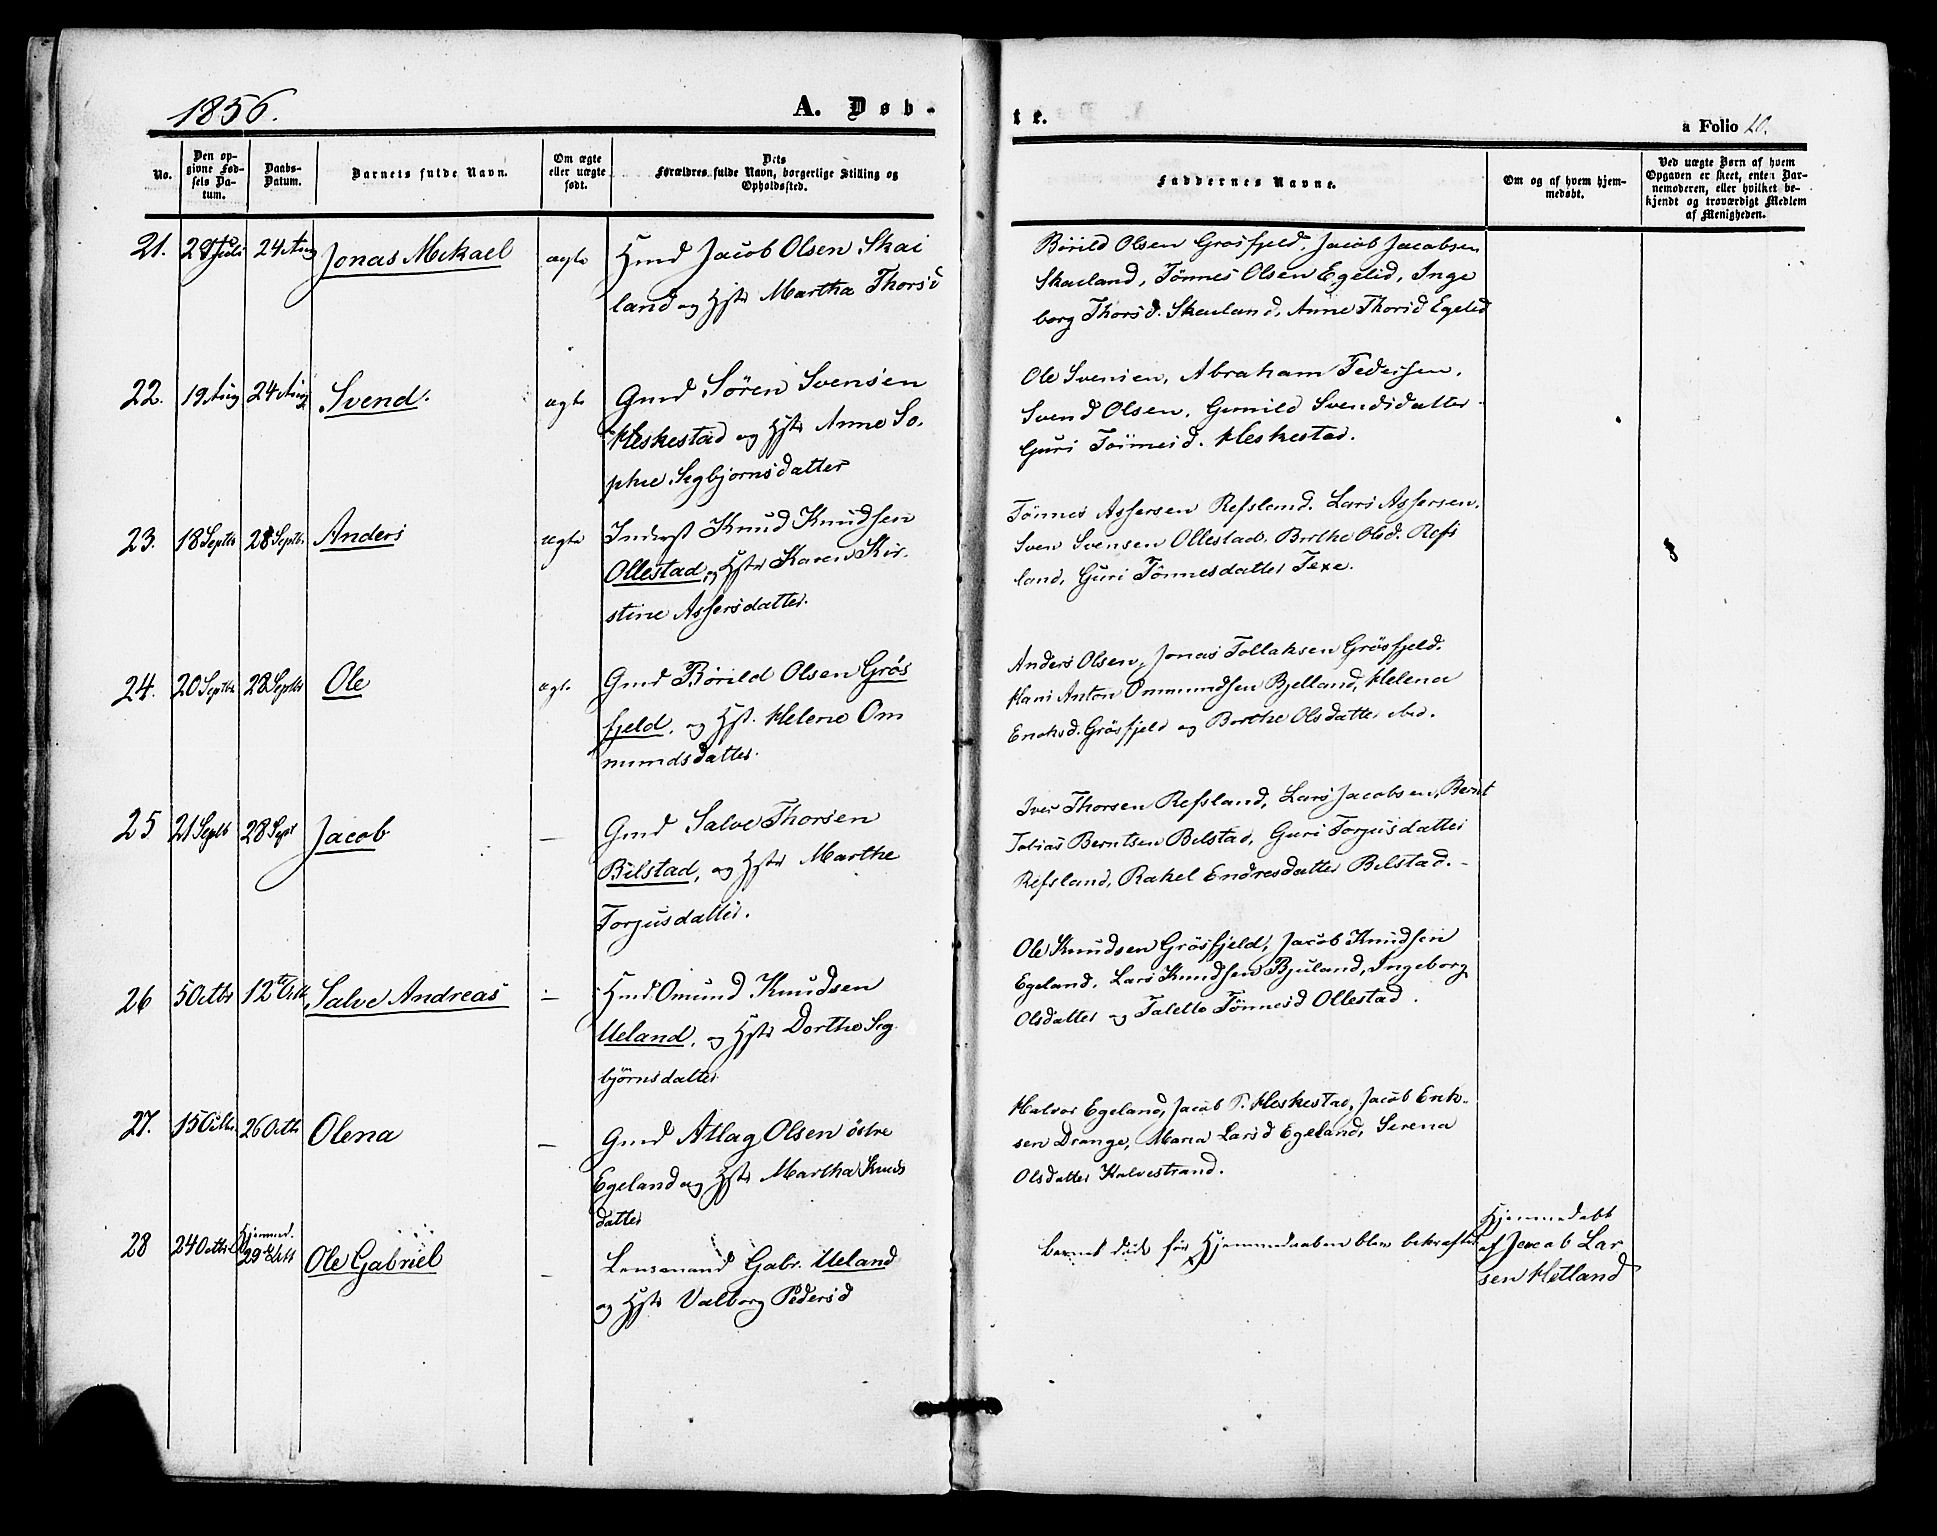 1856.
A. Døb-
te.
a Folio 10.
No.
Den op-
givne Fød-
sels Da-
tum.
Daabs-
Datum.
Barnets fulde Navn.
Om ægte
eller uægte
født.
Dets
Forældres fulde Navn, borgerlige Stilling og
Opholdssted.
Faddernes Navne.
Om og af hvem hjem-
medøbt.
Ved uægte Børn af hvem
Opgaven er skeet, enten Bar-
nemoderen, eller hvilket be-
kjendt og troværdigt Medlem
af Menigheden.
21. Juli 24 Aug Jonas Mekael ægte Hmd Jacob Olsen Skai
land og Hstr Martha Thorsd
Børild Olsen Grøsfjeld, Jacob Jacobsen
Skailand, Tönnes Olsen Egelid, Inge
borg Thorsd. Skailand, Anne Thorsd Egelid
22. 19 Aug 24 Aug Svend. ægte Gmd Sören Svensen
Heskestad og Hstr Anne So-
phie Sigbjornsdatter
Ole Svensen, Abraham Pedersen,
Svend Olsen, Gunild Svendsdatter
Guri Tönnesd. Heskestad.
23. 18 Septbr 28 Septbr Anders ægte Inderst Knud Knudsen
Ollestad, og Hstr Karen Kir-
stine Assersdatter.
Tönnes Assersen Refsland. Lars Assersen,
Sven Svensen Ollestad. Berthe Olsd. Refs
land, Guri Tönnesdatter Texe.
24. 20 Septbr 28 Septbr Ole ægte Gmd Börild Olsen Grøs
fjeld, og Hst. Helene Om
mundsdatter.
Anders Olsen, Jonas Tollaksen Grösfjeld.
Hans Anton Ommundsen Bjelland, Helena
Enoksd. Grösfjeld og Berthe Olsdatter ibid.
25 21 Septb 28 Septr Jacob — Gmd Salve Thorsen
Bilstad, og Hstr Marthe
Torjusdatter.
Iver Thorsen Refsland, Lars Jacobsen, Bernt
Tobias Berntsen Bilstad, Guri Torjusdatter
Refsland, Rakel Endresdatter Bilstad.-
26 5 Octbr 12te Octb. Salve Andreas — Hmd. Omund Knudsen
Ueland, og Hstr Dorthe Sig-
björnsdatter
Ole Knudsen Grösfjeld, Jacob Knudsen
Egeland, Lars Knudsen Bjuland, Ingeborg
Olsdatter og Talette Tönnesd Ollestad.
27. 15 Octbr. 26 Octb Olena — Gmd Atlag Olsen östre
Egeland og Hstr Martha Knuds
datter
Halvor Egeland, Jacob T. Heskestad, Jacob Enok-
sen Drange, Maria Larsd Egeland, Serena
Olsdatter Halvestrand.
28 24 Octbr Hjemmed.
29de Octb Ole Gabriel — Lensmand Gabr. Ueland
og Hstr Valborg Pedersd
Barnet döde för Hjemmedaaben blev bekræftet.
Hjemmedöbt
af Jacob Lar
sen Hetland